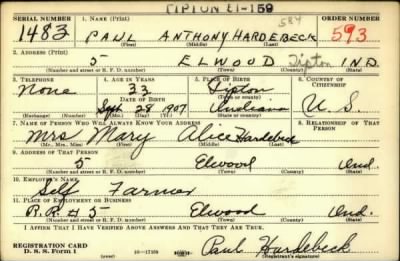 TIPTON 21-159
SERIAL NUMBER 1. NAME (Print) 584 ORDER NUMBER
1483 PAUL ANTHONY HARDEBECK 593
(First) (Middle) (Last)
2. ADDRESS (Print)
5 ELWOOD Tipton IND.
(Number and street or R. F. D. number) (Town) (County) (State)
3. TELEPHONE 4. AGE IN YEARS 5. PLACE OF BIRTH 6. COUNTRY OF CITIZENSHIP
None 33 Tipton
DATE OF BIRTH (Town or county)
Sept 28 1907 Indiana U. S.
(Exchange) (Number) (Mo.) (Day) (Yr.) (State or country)
7. NAME OF PERSON WHO WILL ALWAYS KNOW YOUR ADDRESS 8. RELATIONSHIP OF THAT PERSON
Mrs Mary Alice Hardebeck
(Mr., Mrs., Miss) (First) (Middle) (Last)
9. ADDRESS OF THAT PERSON
5 Elwood Ind.
(Number and street or R. F. D. number) (Town) (County) (State)
10. EMPLOYER'S NAME
Self Farmer
11. PLACE OF EMPLOYMENT OR BUSINESS
R.R. # 5 Elwood Ind.
(Number and street or R. F. D. number) (Town) (County) (State)
I AFFIRM THAT I HAVE VERIFIED ABOVE ANSWERS AND THAT THEY ARE TRUE.
REGISTRATION CARD
D. S. S. Form 1 16-17105 Paul Hardebeck